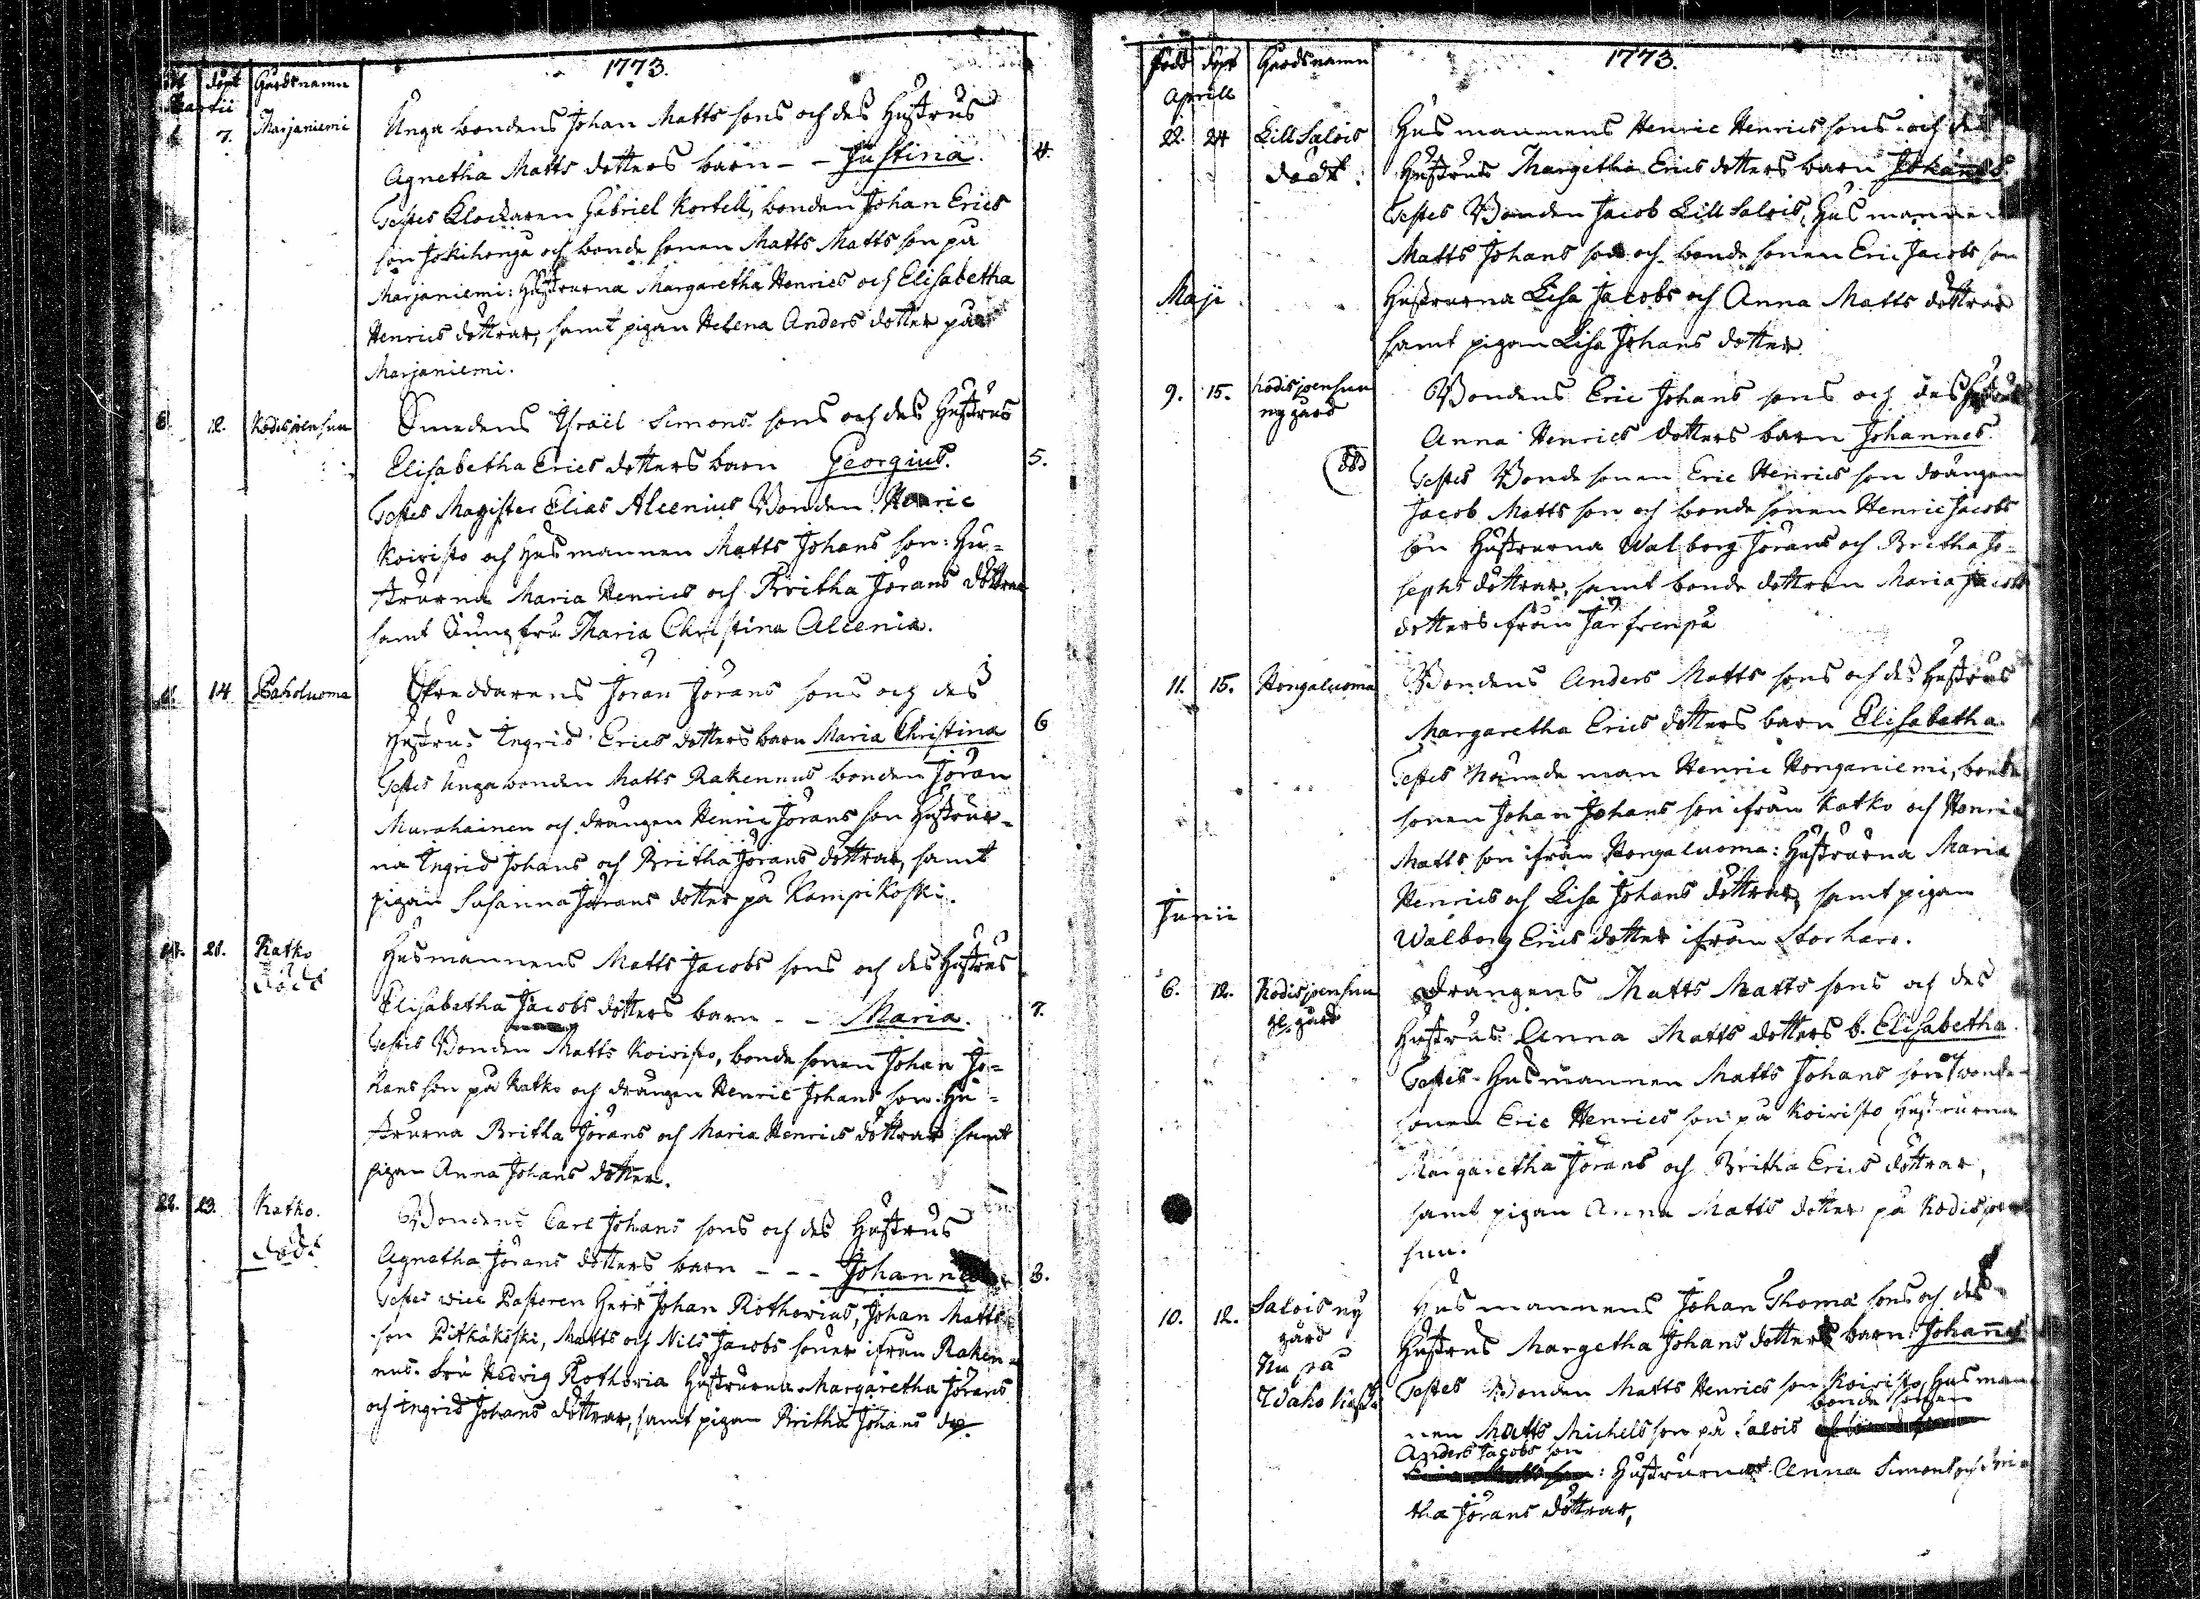 1773.
döpt Gårdsnamn
Martii
7. Marjaniemi Unga bondens Johan Matts sons och des Hustrus
Agnetha Matts dotters barn - - Justina. 4.
Testes Klockaren Gabriel Kortell, bonden Johan Erics
son Jokihonga och bonde sonen Matts Matts son på
Marjaniemi: Hustrurna Margaretha Henrics och Elisabetha
Henrics döttrar, samt pigan Helena Anders dotter på
Marjaniemi.
12. Kodisjoensuu Smedens Israël Simons sons och des Hustrus
Elisabetha Erics dotters barn Georgius. 5.
Testes Magister Elias Alcenius Bonden Henric
Koivisto och Husmannen Matts Johans son: Hu-
strurna Maria Henrics och Britha Jörans döttrar
samt Jungfru Maria Christina Alcenia.
14 Paholuoma Skreddarens Jöran Jörans sons och des
Hustrus Ingrid Erics dotters barn Maria Christina 6
Testes Unga bonden Matts Rakennus bonden Jöran
Murahainen och drängen Henric Jörans son Hustrur-
na Ingrid Johans och Britha Jörans döttrar, samt
pigan Susanna Jörans dotter på Kampikoski.
21. Katko Husmannens Matts Jacobs sons och des Hustrus
död
Elisabetha Jacobs dotters barn - - Maria. 7.
Testes Bonden Matts Koivisto, bonde sonen Johan Jo-
hans son på Katko och drängen Henric Johans son: Hu-
strurna Britha Jörans och Maria Henrics döttrar samt
pigan Anna Johans dotter.
22. 23. Katko. Bondens Carl Johans sons och des Hustrus
död
Agnetha Jörans dotters barn - - - Johannes 8.
Testes vice Pastoren Herr Johan Rothovius, Johan Matts
son Pitkäkoski, Matts och Nils Jacobs söner ifrån Raken-
nus. Fru Hedvig Rothovia Hustrurna Margaretha Jörans
och Ingrid Johans döttrar, samt pigan Britha Johans do.
1773.
född döpt Gårdsnamn
Aprill
22. 24 Lill Salois Husmannens Henric Henrics sons och des
dödt. Hustrus Margetha Erics dotters barn Johannes
Testes Bonden Jacob Lill Salois, Husmannen
Matts Johans son och bonde sonen Eric Jacobs son
Maji Hustrurna Lisa Jacobs och Anna Matts döttrar
samt pigan Lisa Johans dotter
9. 15. Kodisjoensuu Bondens Eric Johans sons och des Hustrus
ny gård
Anna Henrics dotters barn Johannes.
död Testes Bonde sonen Eric Henrics son drängen
Jacob Matts son och bonde sonen Henric Jacobs
son Hustrurna Walborg Jörans och Britha Jo-
sephs döttrar, samt bonde dottren Maria Jacobs
dotters ifrån Järfvenpä
11. 15. Hongaluoma Bondens Anders Matts sons och des Hustrus
Margaretha Erics dotters barn Elisabetha.
Testes Nämde man Henric Honganiemi, bonde
sonen Johan Johans son ifrån Katko och Henric
Matts son ifrån Hongaluoma: Hustrurna Maria
Henrics och Lisa Johans döttrar, samt pigan
Junii
Walborg Erics dotter ifrån Storharo.
6. 12. Kodisjoensuu Drängens Matts Matts sons och des
gl. gård
Hustrus Anna Matts dotters b. Elisabetha.
Testes Husmannen Matts Johans son och bonde
sonen Eric Henrics son på Koivisto Hustrurna
Margaretha Jörans och Britha Erics döttrar,
samt pigan Anna Matts dotter på Kodisjoen
suu.
10. 12. Salois ny Husmannens Johan Thomæ sons och des
gård
Hustrus Margetha Johans dotters barn Johannes
Nu på
Testes Bonden Matts Henrics son Koivisto, Husman-
bonde sonen
nen Matts Michels son på Salois
Anders Jacobs son
: Hustrurna Anna Simons och Bri-
tha Jörans döttrar,